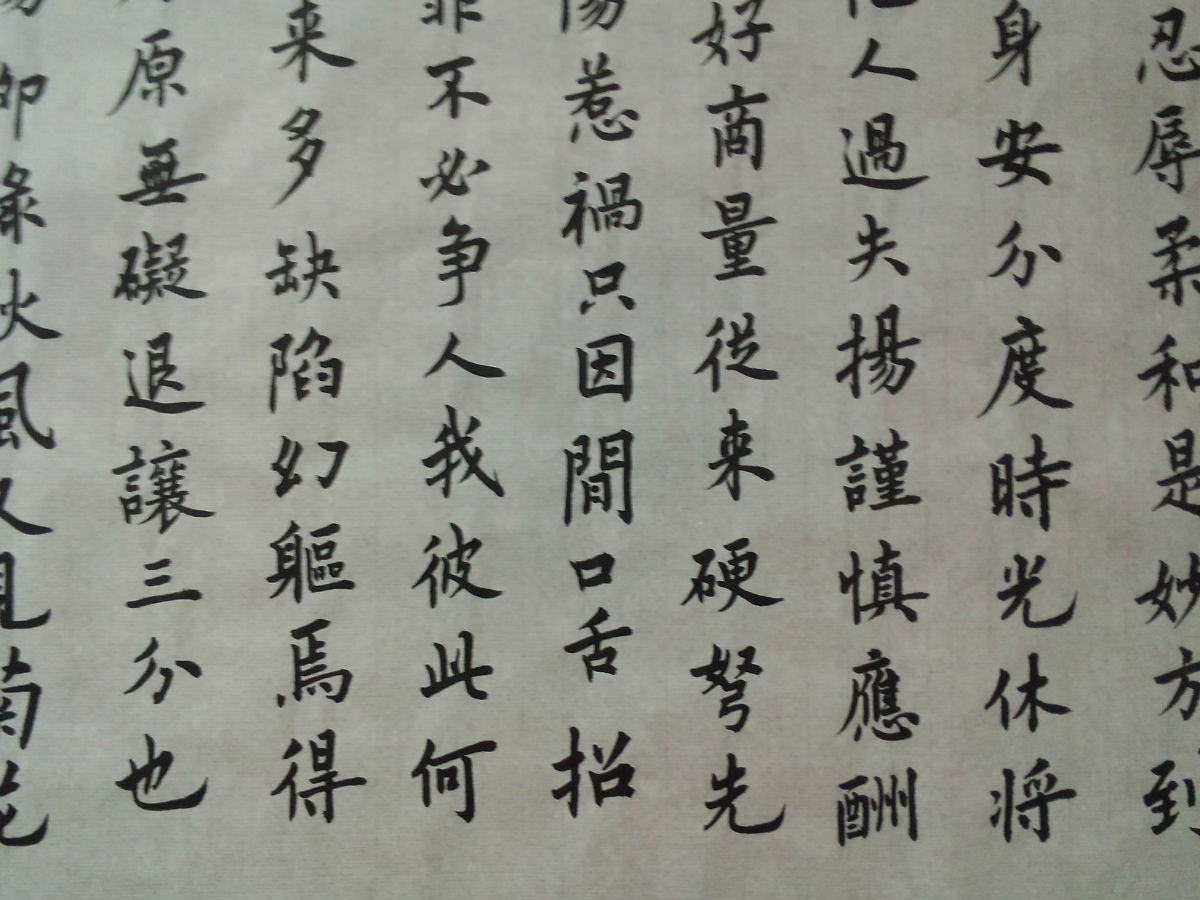 忍辱柔和是妙方到
身安分度時光休将
人過失揚謹慎應酬
好商量從来硬弩先
惹禍只因閒口舌招
非不必争人我彼此何
来多缺陷幻軀焉得
原無礙退讓三分也
火風